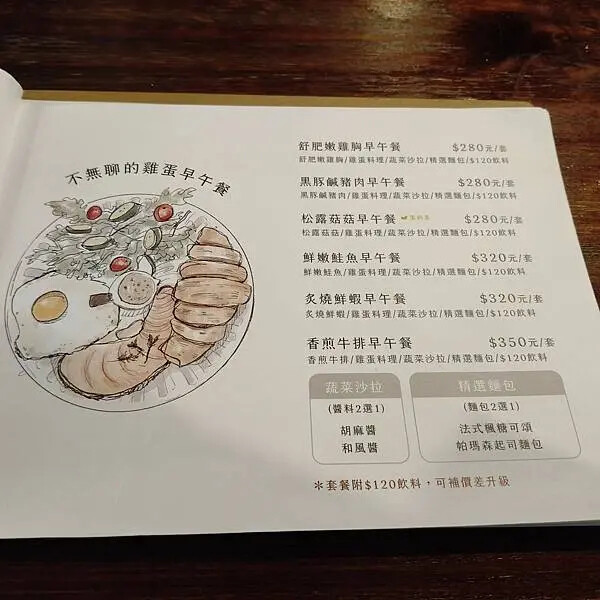 不無聊的雞蛋早午餐
舒肥嫩雞胸早午餐 $280元/套
舒肥嫩雞胸/雞蛋料理/蔬菜沙拉/精選麵包/$120飲料
黑豚鹹豬肉早午餐 $280元/套
黑豚鹹豬肉/雞蛋料理/蔬菜沙拉/精選麵包/$120飲料
松露菇菇早午餐 $280元/套
松露菇菇/雞蛋料理/蔬菜沙拉/精選麵包/$120飲料
鮮嫩鮭魚早午餐 $320元/套
鮮嫩鮭魚/雞蛋料理/蔬菜沙拉/精選麵包/$120飲料
炙燒鮮蝦早午餐 $320元/套
炙燒鮮蝦/雞蛋料理/蔬菜沙拉/精選麵包/$120飲料
香煎牛排早午餐 $350元/套
香煎牛排/雞蛋料理/蔬菜沙拉/精選麵包/$120飲料
蔬菜沙拉
(醬料2選1)
胡麻醬
和風醬
精選麵包
(麵包2選1)
法式楓糖可頌
帕瑪森起司麵包
＊套餐附$120飲料，可補價差升級